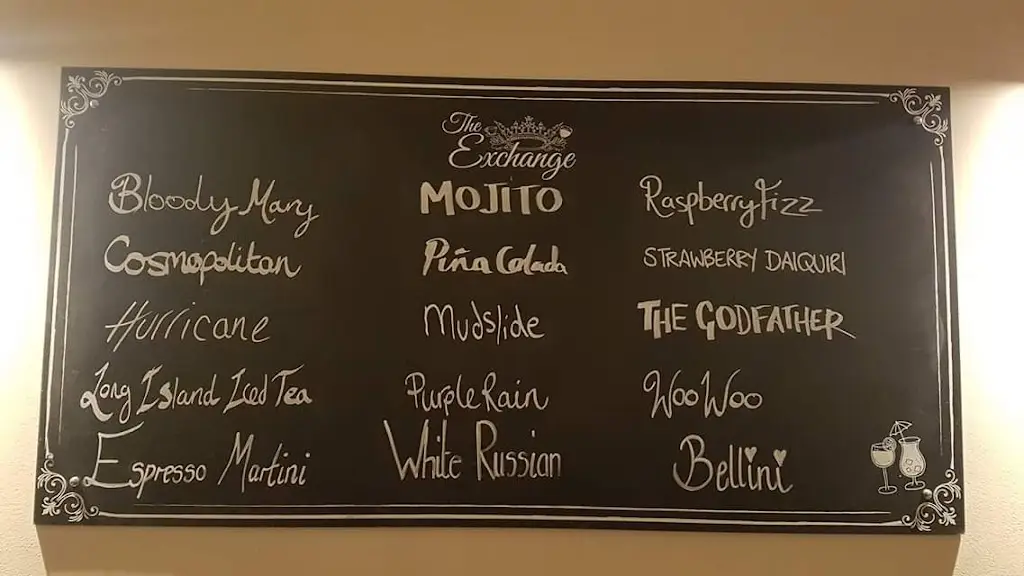 The
Exchange
Bloody Mary
Cosmopolitan
Hurricane
Long Island Iced Tea
Espresso Martini
MOJITO
Piña Colada
Mudslide
Purple Rain
White Russian
Raspberry Fizz
STRAWBERRY DAIQUIRI
THE GODFATHER
Woo Woo
Bellini